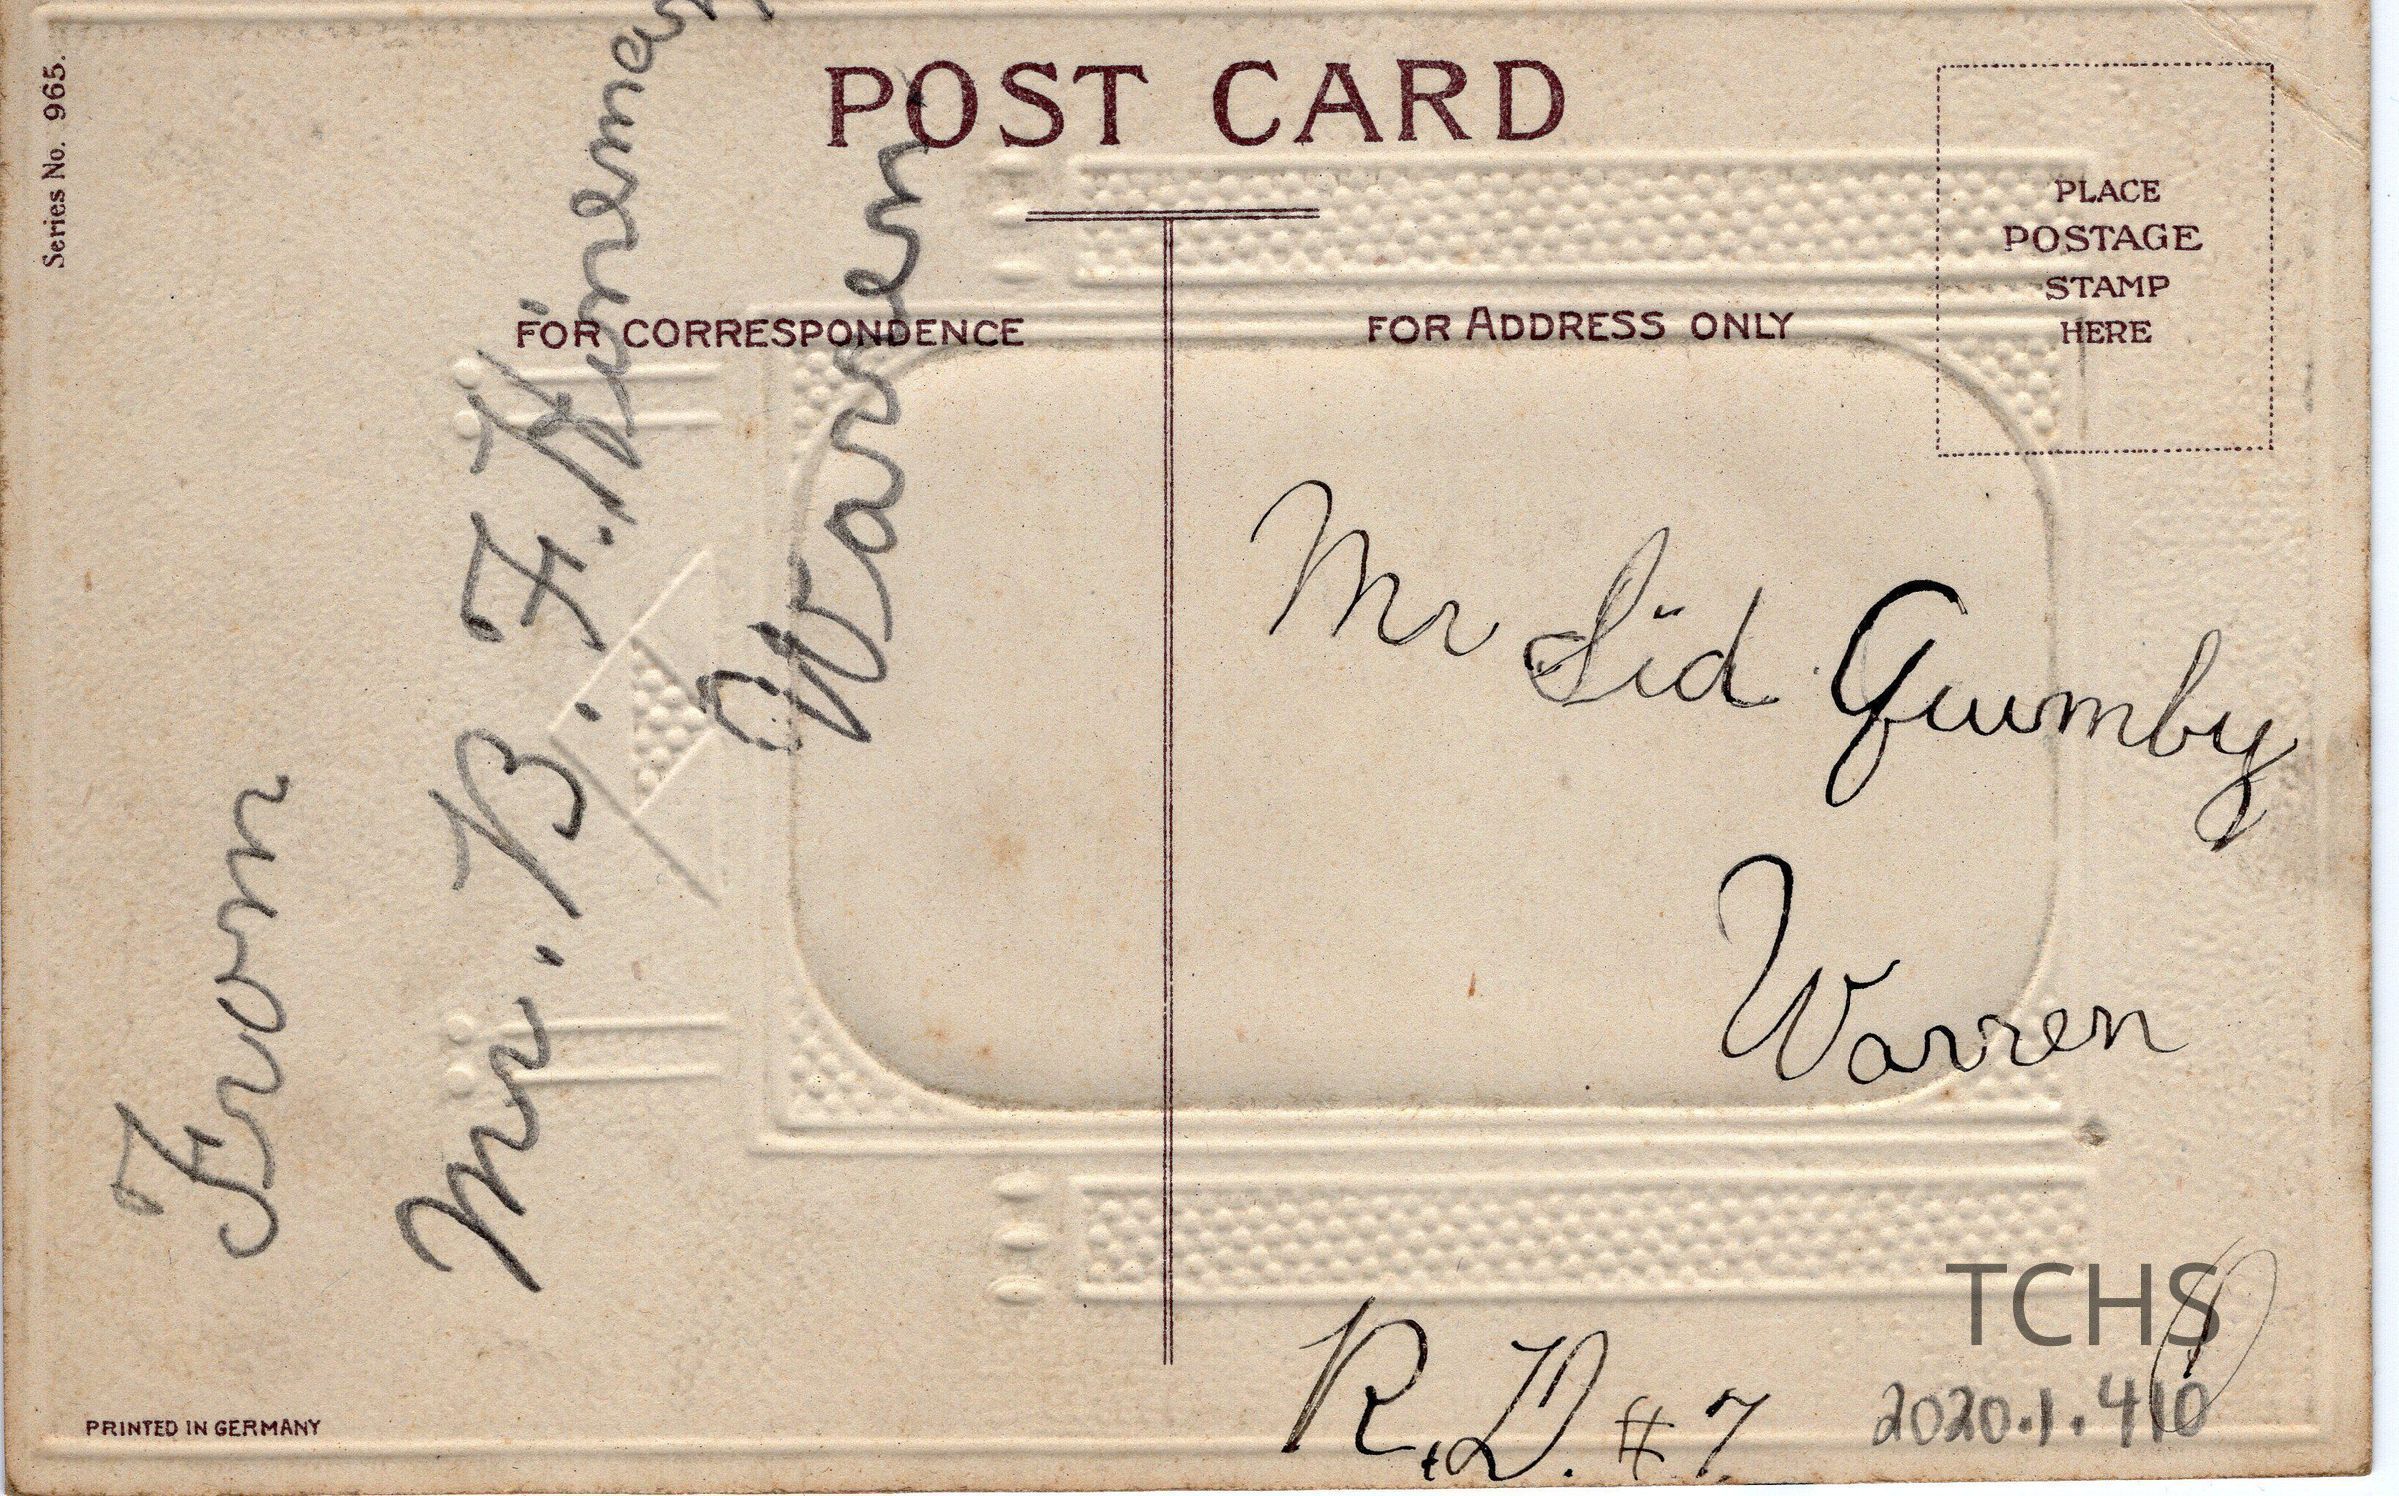 Series No. 965.
POST CARD
PLACE
POSTAGE
STAMP
HERE
FOR CORRESPONDENCE
FOR ADDRESS ONLY
From
Mr. B. F.
Warren
Mr Sid
Warren
R.D. # 7
PRINTED IN GERMANY
TCHS
2020.1.410